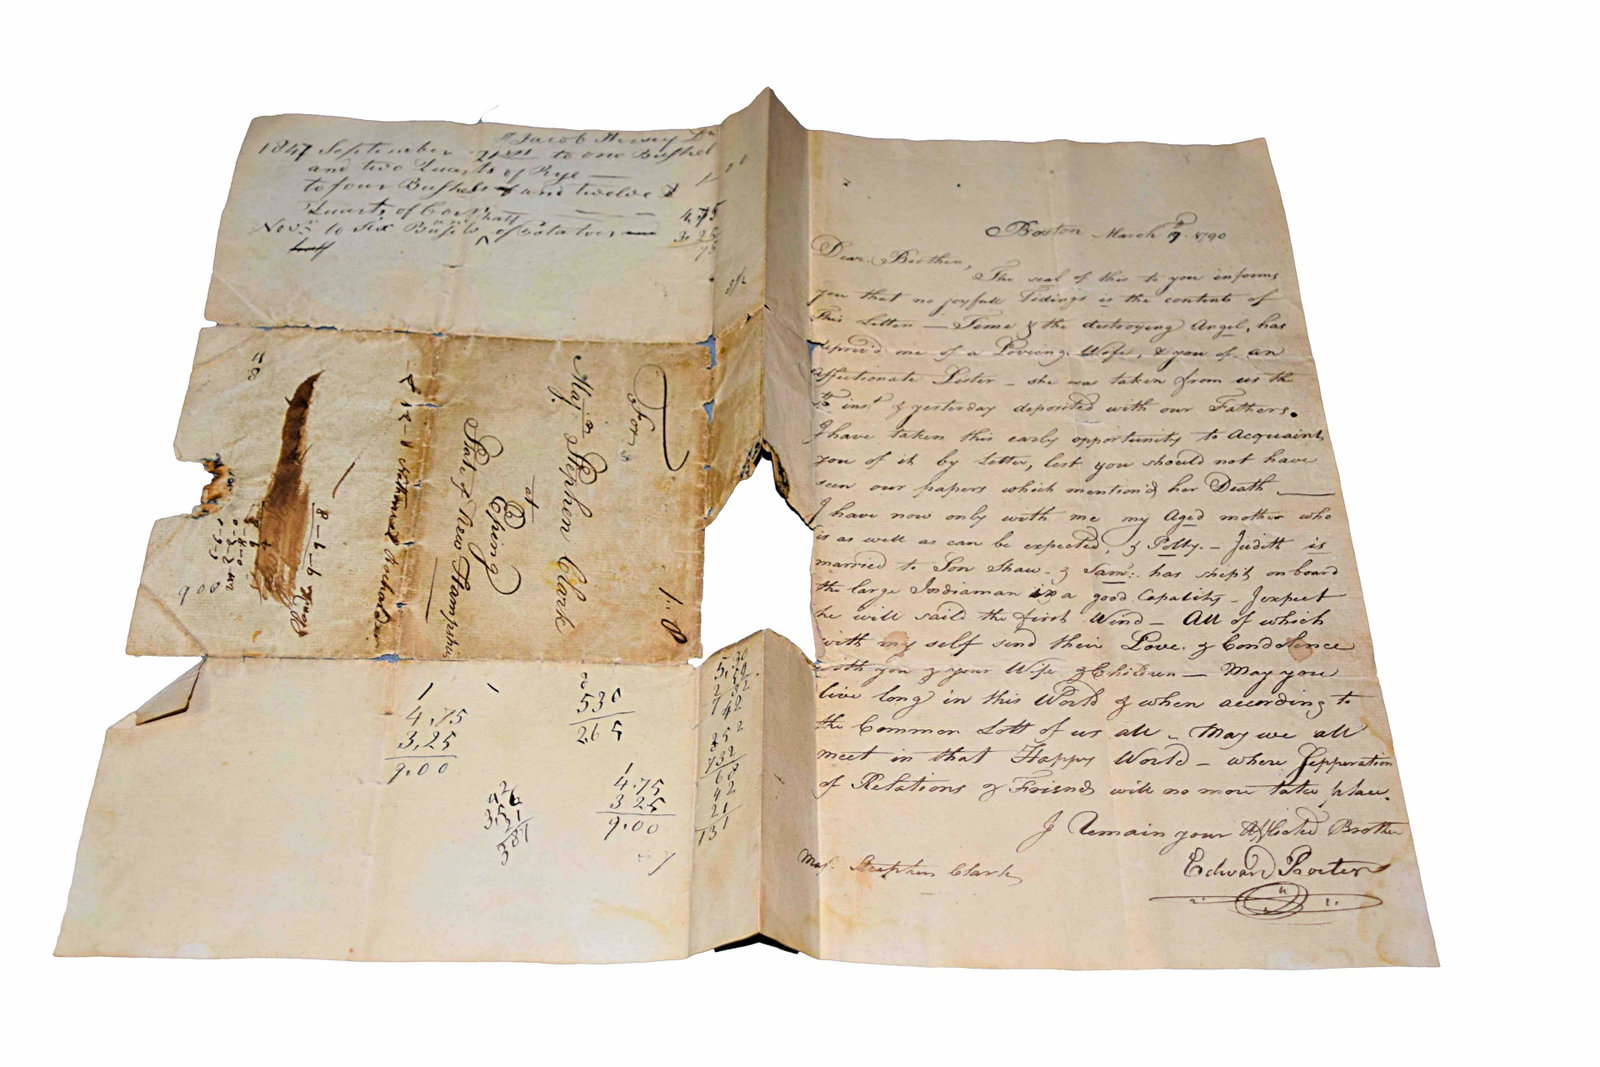 Jacob Henry Dr
1847 September 21st to one Bushel
and two Quarts of Rye — 1
to four Bushels and twelve
Quarts of Corn — 4,75
Novr to Six Bushls and half of Potatoes 3,25
half
For
Majr Stephen Clark
at
Eping
State of New Hampshire
8-6-6
900
1
4,75
3,25
9.00
1
530
265
1
4.75
3 25
9.00
Boston March 9th 1790
Dear Brethen,
The seal of this to you informs
you that no joyfull Tidings is the contents of
This Letter — Time & the destroying Angel, has
depriv'd me of a Loving Wife, & you of an
Affectionate Sister — she was taken from us the
th inst & yesterday deposited with our Fathers.
I have taken this early opportunity to Acquaint
you of it by Letter, lest you should not have
seen our papers which mention'd her Death —
I have now only with me my Aged mother who
is as well as can be expected, & Polly. — Judith is
married to Son Shaw — & Saml: has shipt on board
the large Indiaman in a good Capality — I expect
he will saild the first Wind — All of which
with my self send their Love & Condolence
with you & your Wife & Children — May you
live long in this World & when according to
the Common Lott of us all — May we all
meet in that Happy World — where Sepperation
of Relations & Friends will no more take place.
I Remain your Afflicted Brother
Edward Procter
Majr. Stephen Clark